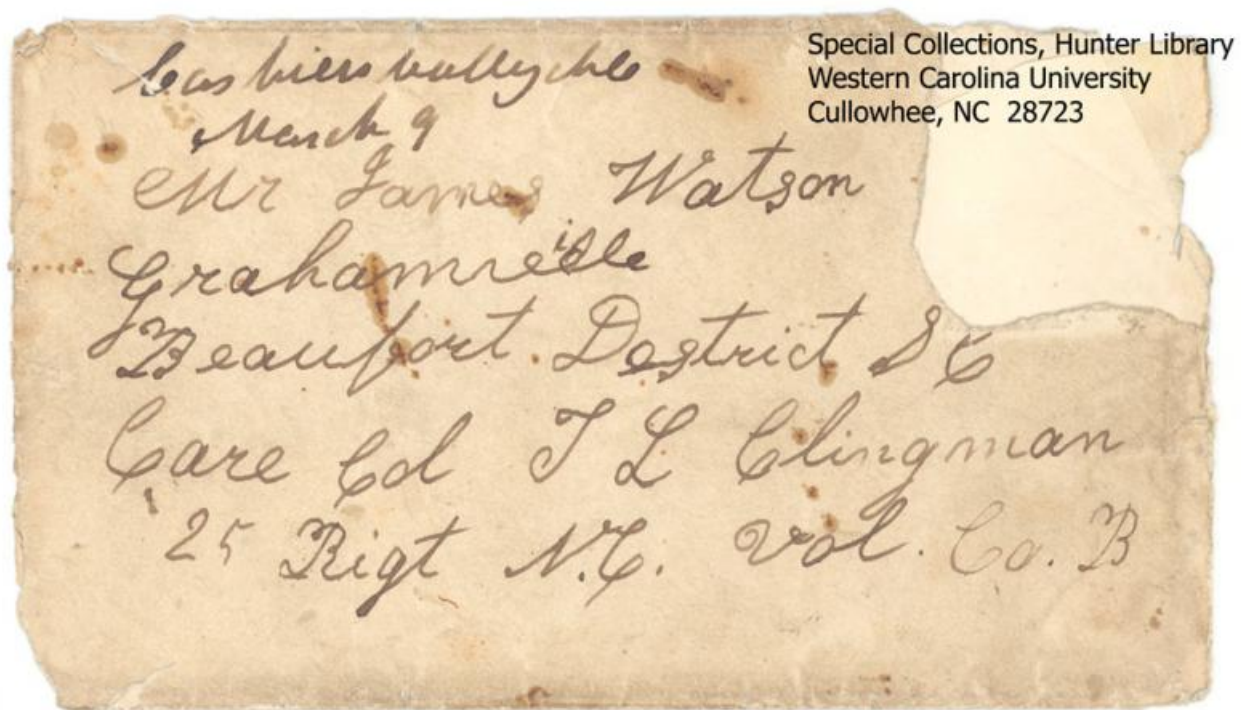 Special Collections, Hunter Library
Western Carolina University
Cullowhee, NC 28723
March 9
Mr James Watson
Grahamville
Beaufort Destrict S C
Care Col T L Clingman
25 Rigt N.C. Vol. Co. B